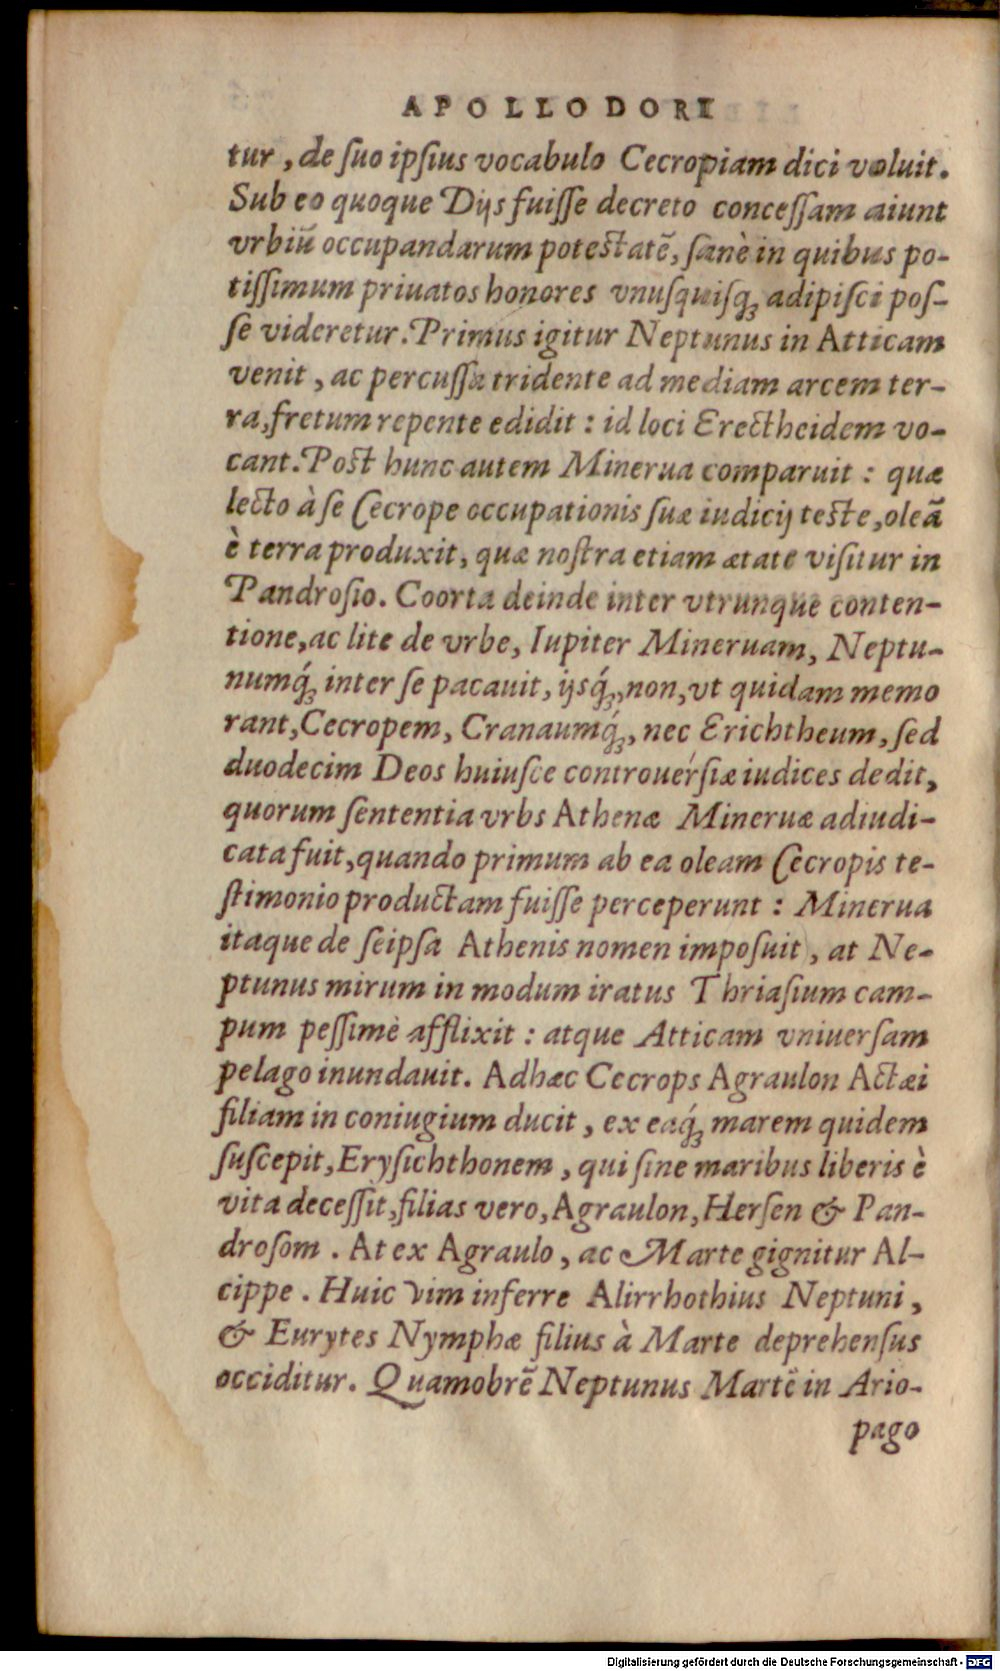 APOLLODORI
tur, de ſuo ipſius vocabulo Cecropiam dici voluit.
Sub eo quoque Dijs fuiſſe decreto conceſſam aiunt
vrbiũ occupandarum poteſtatẽ, ſanè in quibus po-
tiſſimum priuatos honores vnuſquiſq́; adipiſci poſ-
ſe videretur. Primus igitur Neptunus in Atticam
venit, ac percuſſa tridente ad mediam arcem ter-
ra, fretum repente edidit : id loci Erectheidem vo-
cant. Poſt hunc autem Minerua comparuit : quæ
lecto à ſe Cecrope occupationis ſuæ iudicij teſte, oleã
è terra produxit, quæ noſtra etiam ætate viſitur in
Pandroſio. Coorta deinde inter vtrunque conten-
tione, ac lite de vrbe, Iupiter Mineruam, Neptu-
numq́; inter ſe pacauit, ijsq́;, non, vt quidam memo
rant, Cecropem, Cranaumq́;, nec Erichtheum, ſed
duodecim Deos huiuſce controuerſiæ iudices dedit,
quorum ſententia vrbs Athenæ Mineruæ adiudi-
cata fuit, quando primum ab ea oleam Cecropis te-
ſtimonio productam fuiſſe perceperunt : Minerua
itaque de ſeipſa Athenis nomen impoſuit, at Ne-
ptunus mirum in modum iratus Thriaſium cam-
pum peſſimè afflixit : atque Atticam vniuerſam
pelago inundauit. Adhæc Cecrops Agraulon Actæi
filiam in coniugium ducit, ex eaq́; marem quidem
ſuſcepit, Eryſichthonem, qui ſine maribus liberis è
vita deceſſit, filias vero, Agraulon, Herſen & Pan-
droſom. At ex Agraulo, ac Marte gignitur Al-
cippe. Huic vim inferre Alirrhothius Neptuni,
& Eurytes Nymphæ filius à Marte deprehenſus
occiditur. Quamobrẽ Neptunus Martẽ in Ario-
pago
Digitalisierung gefördert durch die Deutsche Forschungsgemeinschaft - DFG